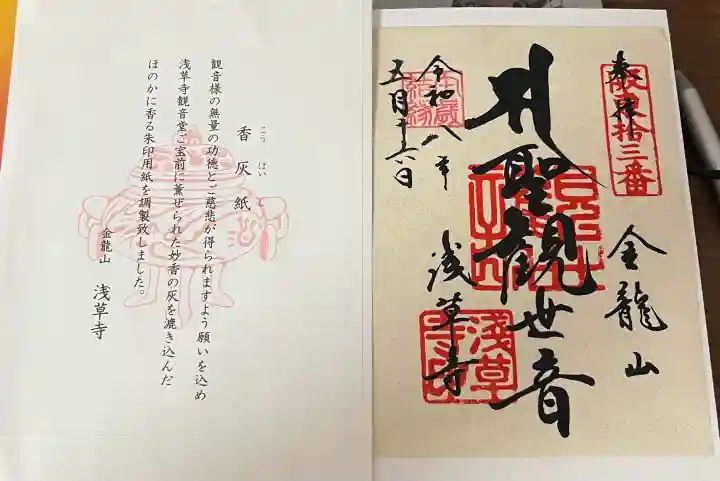 奉拝
坂東拾三番
金龍山
聖観世音
浅草寺
淺草寺印
令和八年
香灰紙
こうばいし
観音様の無量の功徳とご慈悲が得られますよう願いを込め
浅草寺観音堂ご宝前に薫ぜられた妙香の灰を漉き込んだ
ほのかに香る朱印用紙を調製致しました。
金龍山 浅草寺